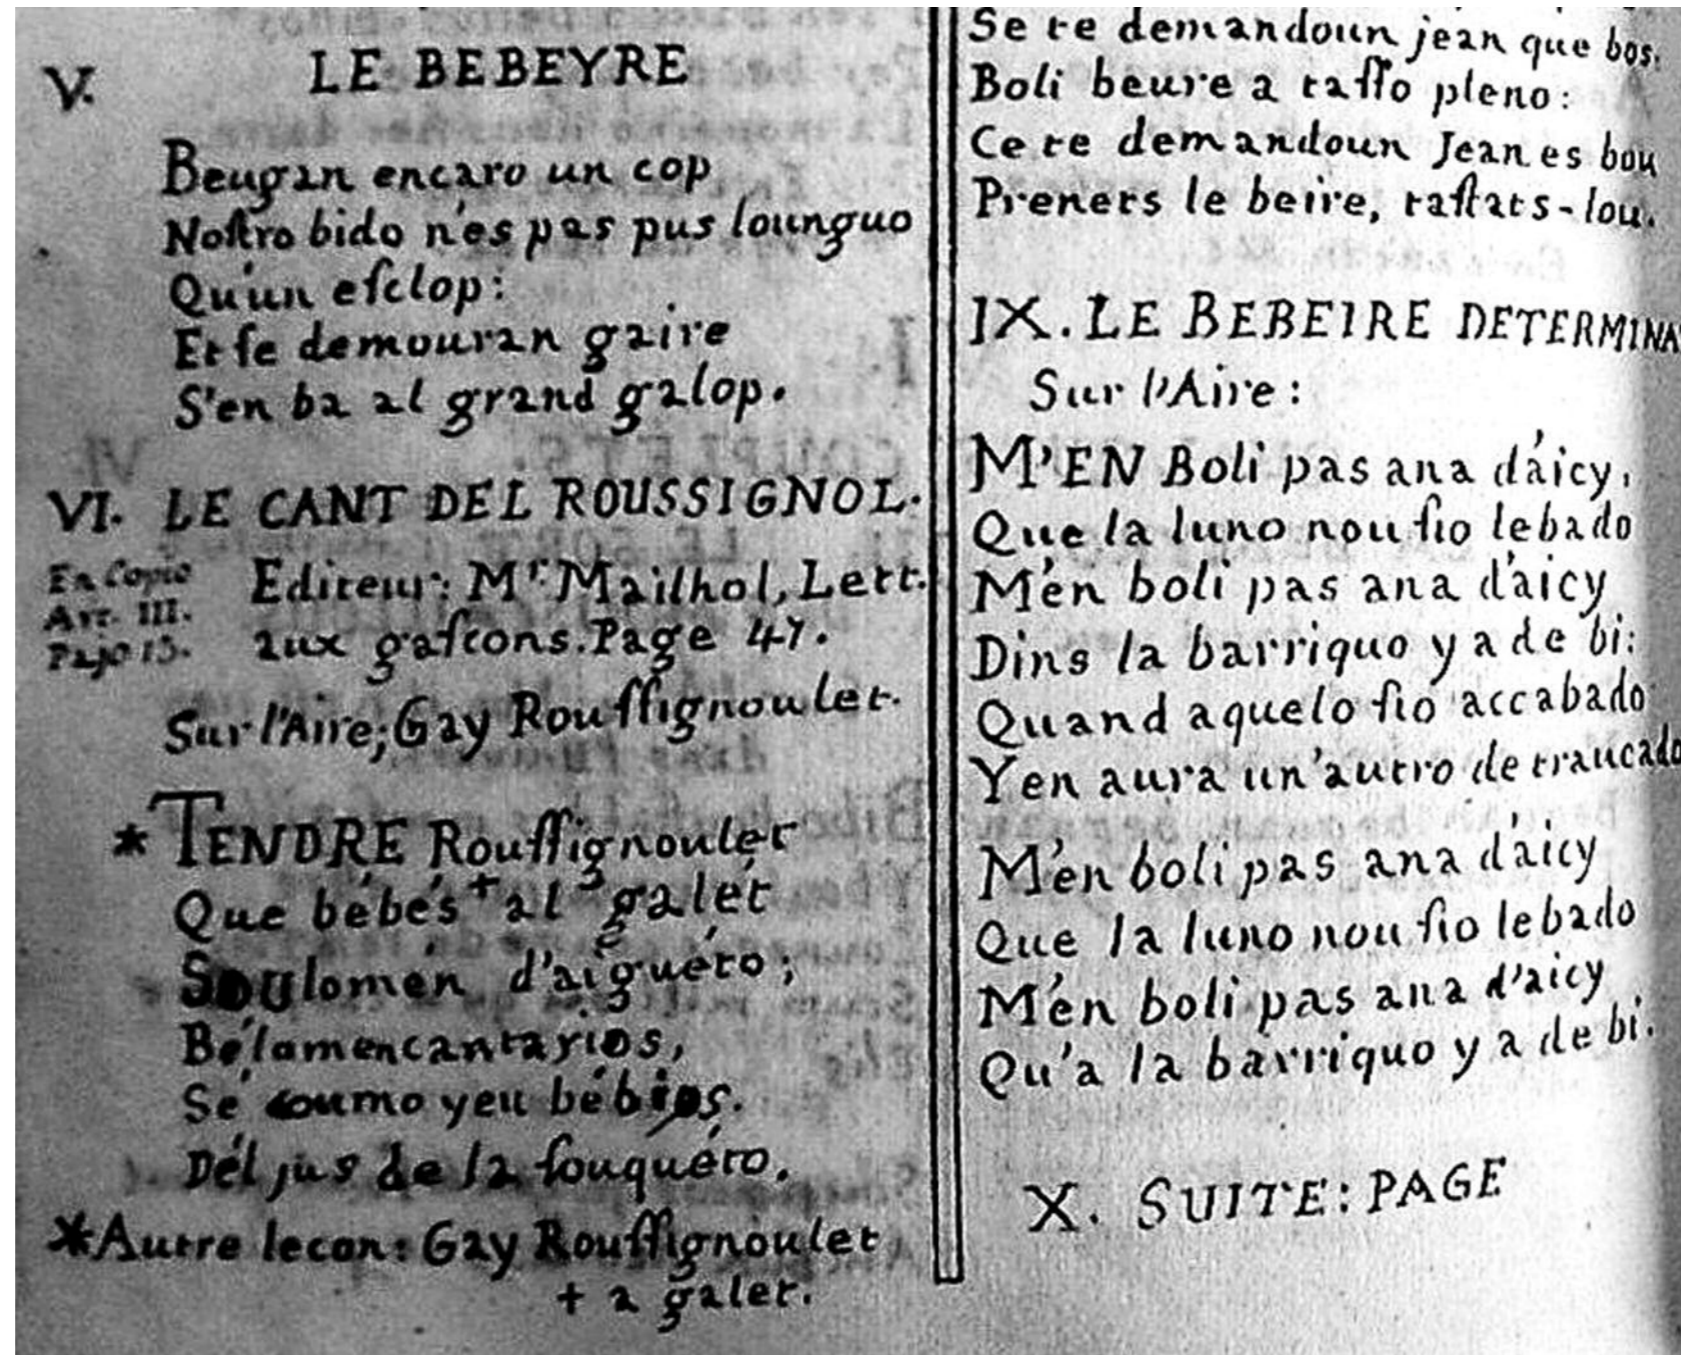 V. LE BEBEYRE
Beugan encaro un cop
Noſtro bido n'es pas pus lounguo
Qu'un eſclop:
Et ſe demouran gaire
S'en ba al grand galop.
VI. LE CANT DEL ROUSSIGNOL.
En Copio
Art. III.
Pajo 13.
Editeur: Mr. Mailhol, Lett.
aux gaſcons. Page 47.
Sur l'Aire; Gay Rouſſignoulet.
* TENDRE Rouſſignoulet
Que bébés + al galét
Soulomén d'aiguéto;
Bélomen cantarios,
Sé coumo yeu bébios.
Dél jus de la ſouquéto.
*Autre lecon: Gay Rouſſignoulet
+ a galet.
Se te demandoun jean que bos.
Boli beure a taſſo pleno:
Ce te demandoun Jean es bou
Prenets le beire, taſtats-lou.
IX. LE BEBEIRE DETERMINA
Sur l'Aire:
M'EN Boli pas ana d'aicy,
Que la luno nou ſio lebado
M'en boli pas ana d'aicy
Dins la barriquo y a de bi:
Quand aquelo ſio accabado
Yen aura un'autro de traucado
M'en boli pas ana d'aicy
Que la luno nou ſio lebado
M'en boli pas ana d'aicy
Qu'a la barriquo y a de bi.
X. SUITE: PAGE